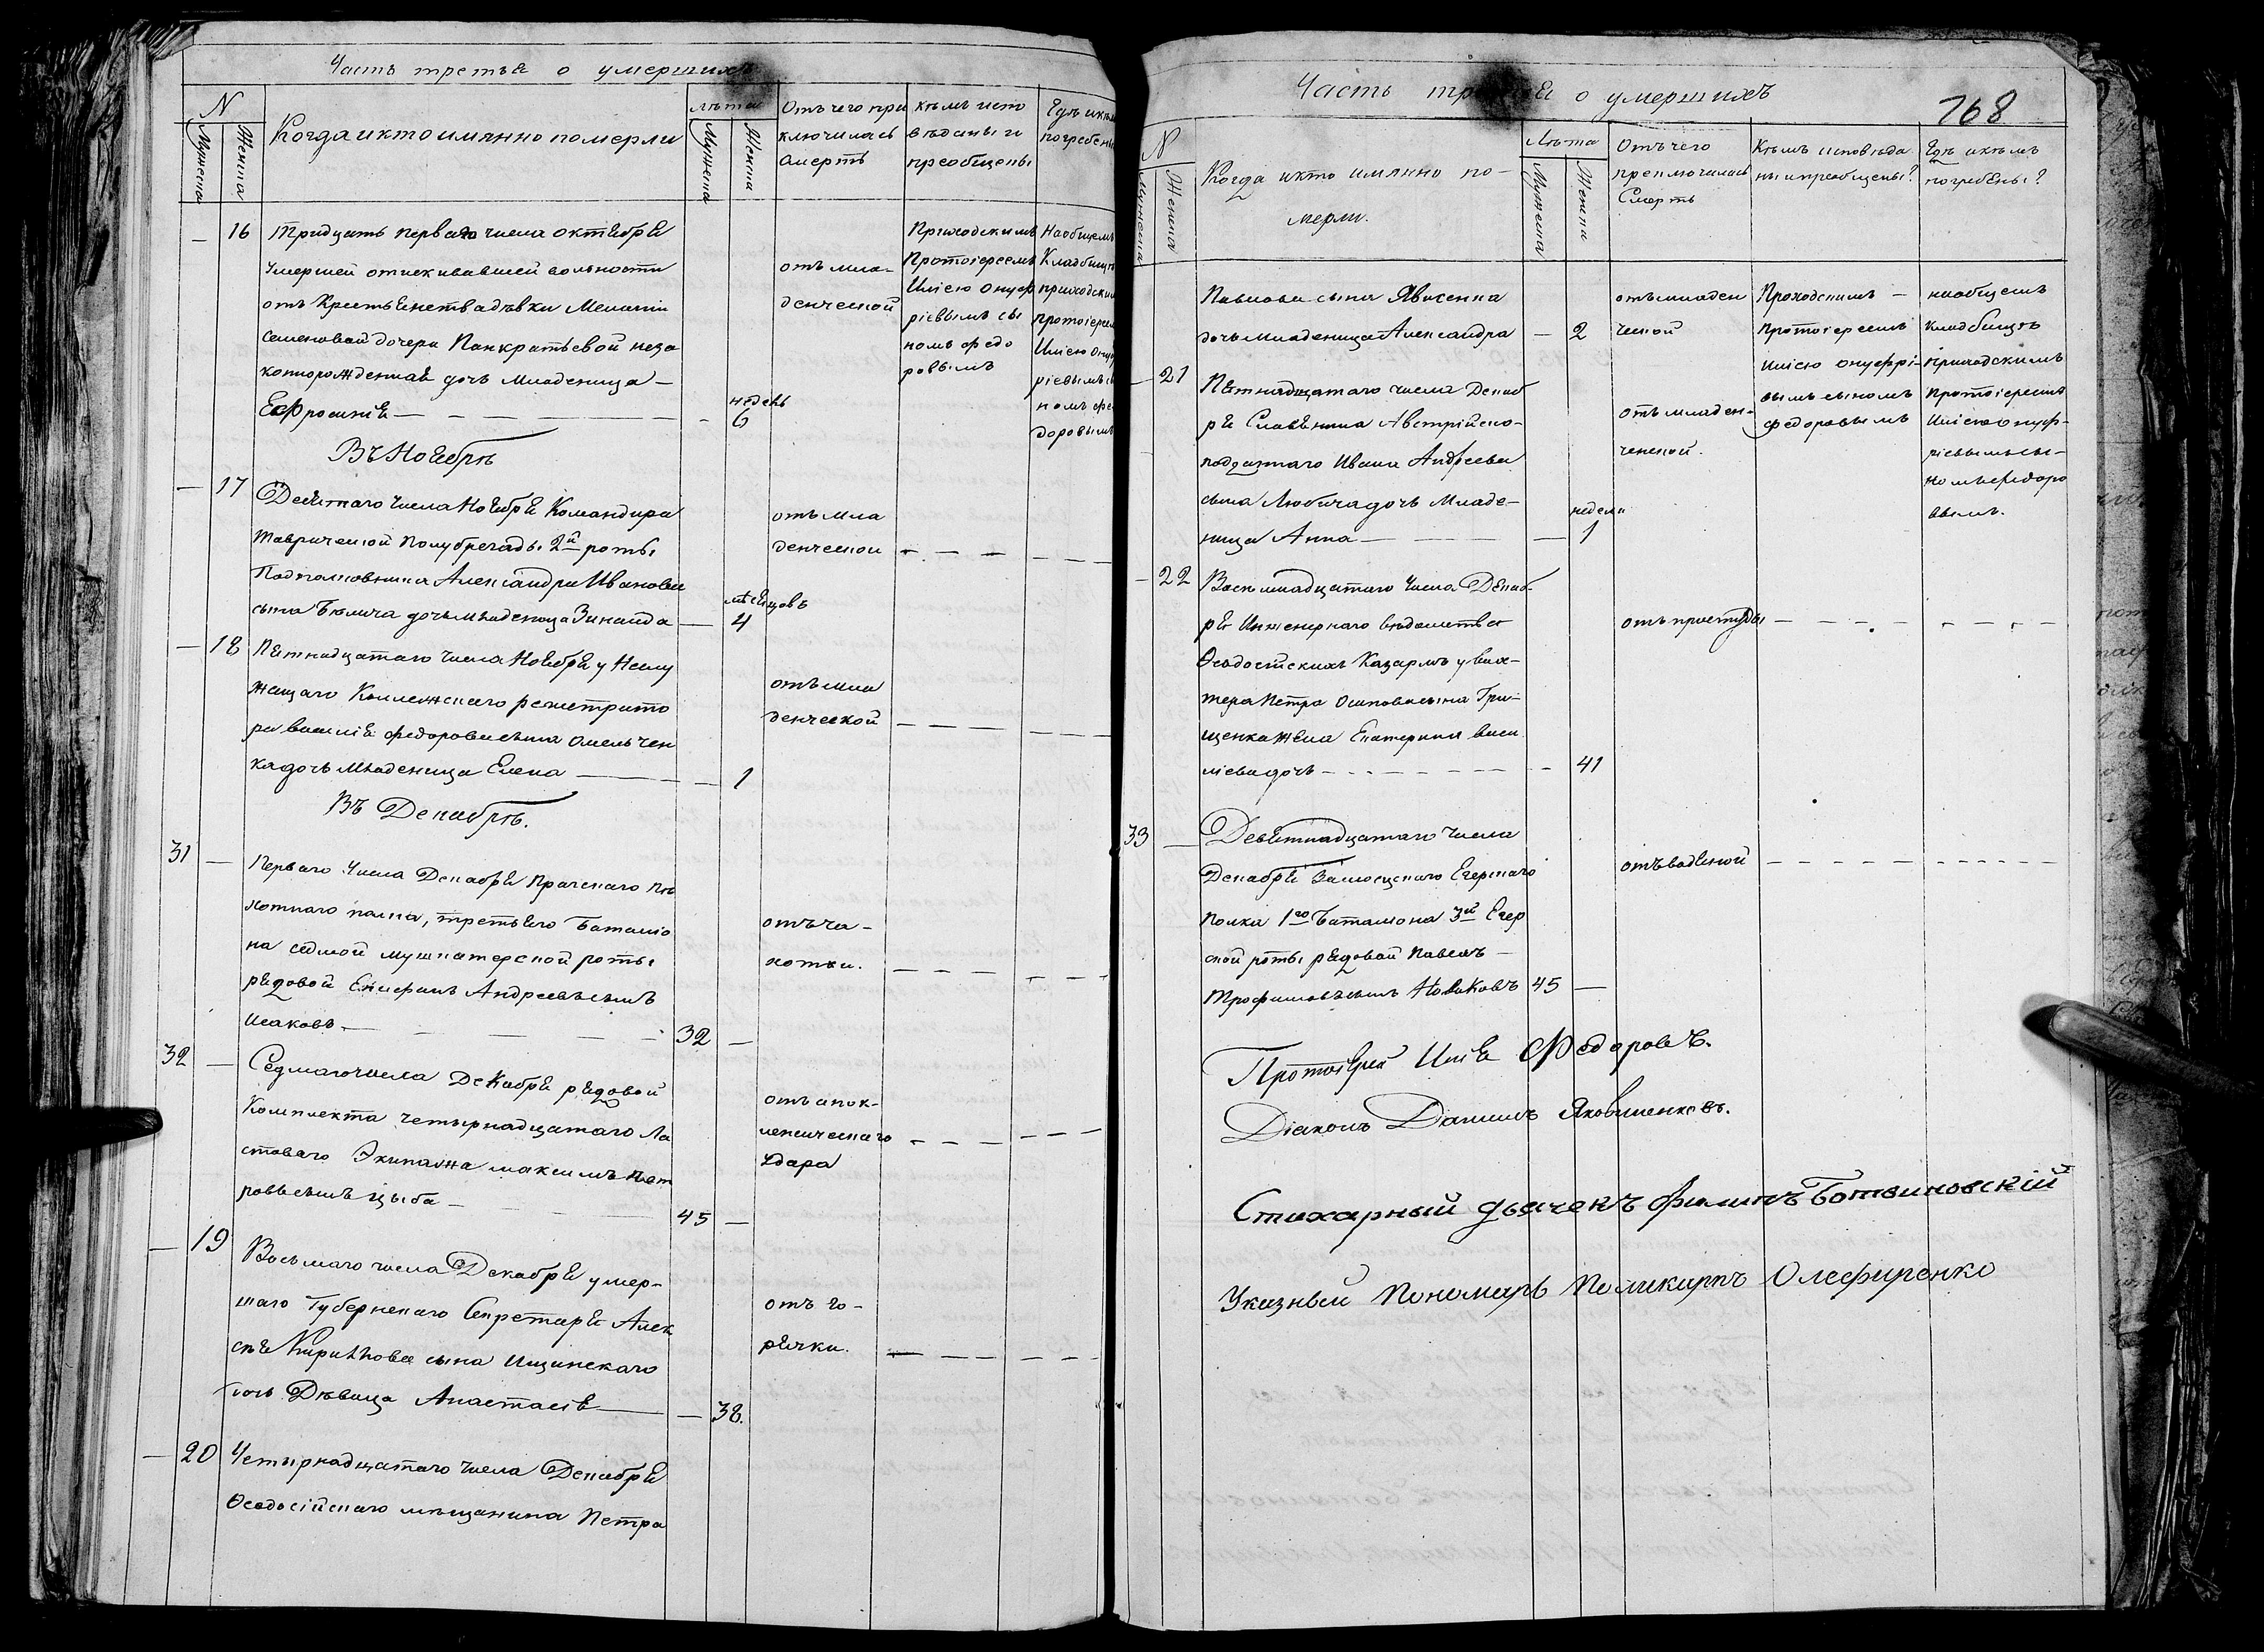 Часть третья о умершихъ
N
Мужеска
Женска
Когда и кто имянно померли
лѣта
Мужеска
Женска
Отъ чего при
ключилась
смерть
кѣмъ испо
вѣданы и
преобщены
Гдѣ и кѣмъ
погребены
— 16 Тридцать перваго числа октября
умершей отискивавшей вольности
отъ Крестьянства дѣвки Меланіи
Семеновой дочери Панкратьевой неза
конорожденная дочь младеница —
Ефросинія — — — — недель 6
отъ мла-
денческой
Приходскимъ
Протоіереемъ
Иліею Онуф
ріевымъ сы
номъ Федо
ровымъ
На общемъ
Кладбищѣ
приходским
протоіерее
Иліею Онуф
ріевымъ с
номъ Фе
доровымъ
Въ Ноябрѣ
— 17 Десятаго числа Ноября Командира
Таврической полубригады 2й роты
Подполковника Александра Иванова
сына Бюлича дочь младеница Зинаида — 4 мѣсяцовъ
отъ мла
денческой — — — —
— 18 Пятнадцатаго числа Ноября у Неслу
жащаго Коллежскаго регистрато
ра василія федорова сына Омельчен
ка дочь младеница Елена — — 1
отъ мла
денческой — — — —
Въ Декабрѣ.
31 — Перваго числа Декабря Пражскаго пѣ
хотнаго полка, третьяго Баталіо
на седмой мушкатерской роты
рядовой Епифанъ Андреевъ сынъ
Исаковъ — — — 32 —
отъ ча-
хотки. — — — —
32 — Седмаго числа Декабря рядовой
Комплекта четырнадцатаго Ла
стоваго Экипажа максимъ пет
ровъ сынъ Цыба — — 45 —
отъ апок-
лексическаго — — — —
Удара
— 19 Восьмаго числа Декабря умер-
шаго Губернскаго Секретаря Алек
сѣя Кирилова сына Ищинскаго
дочь Дѣвица Анастасія — — 38.
отъ го-
рячки. — — — —
— 20 Четырнадцатаго числа Декабря
Ѳеодосійскаго мѣщанина Петра
Часть третья о умершихъ
168
N
Мужеска
Женска
Когда и кто имянно по-
мерли.
Лѣта
Мужеска
Женска
Отъ чего
преключилась
Смерть
Кѣмъ исповѣда
ны и преобщены?
Гдѣ и кѣмъ
погребены?
Павлова сына Явженка
дочь младеница Александра — 2
отъ младен
ческой
Приходскимъ —
протоіереемъ
Иліею Онуфрі-
вымъ сыномъ
Федоровымъ
на общемъ
кладбищѣ
приходскимъ
протоіереемъ
Иліею Онуф-
ріевымъ сы-
номъ Федоро
вымъ.
— 21 Пятнадцатаго числа Декаб
ря Славянина Австрійско-
подданаго Ивана Андреева
сына Любича дочь Младе-
ница Анна — — — недели 1
отъ младен-
ческой.
— 22 Восемнадцатаго числа Декаб-
ря Инженернаго вѣдомства
Ѳеодосійскихъ Казармъ у вах-
тера Петра Осипова сына Гри-
щенка жена Екатерина васи
ліева дочь — — — — 41
отъ простуды — — — — — —
33 — Девятнадцатаго числа
Декабря Замосцскаго Егерскаго
полка 1го Баталіона 3й Егер
ской роты рядовой Павелъ —
Трофимовъ сынъ Новиковъ 45 —
отъ водяной — — — — — —
Протоіерей Илія Федоровъ.
Діаконъ Даниилъ Яковшенковъ.
Стихарный дьячекъ Филипъ Ботвиновскій
Указный Пономарь Поликарпъ Олефиренко